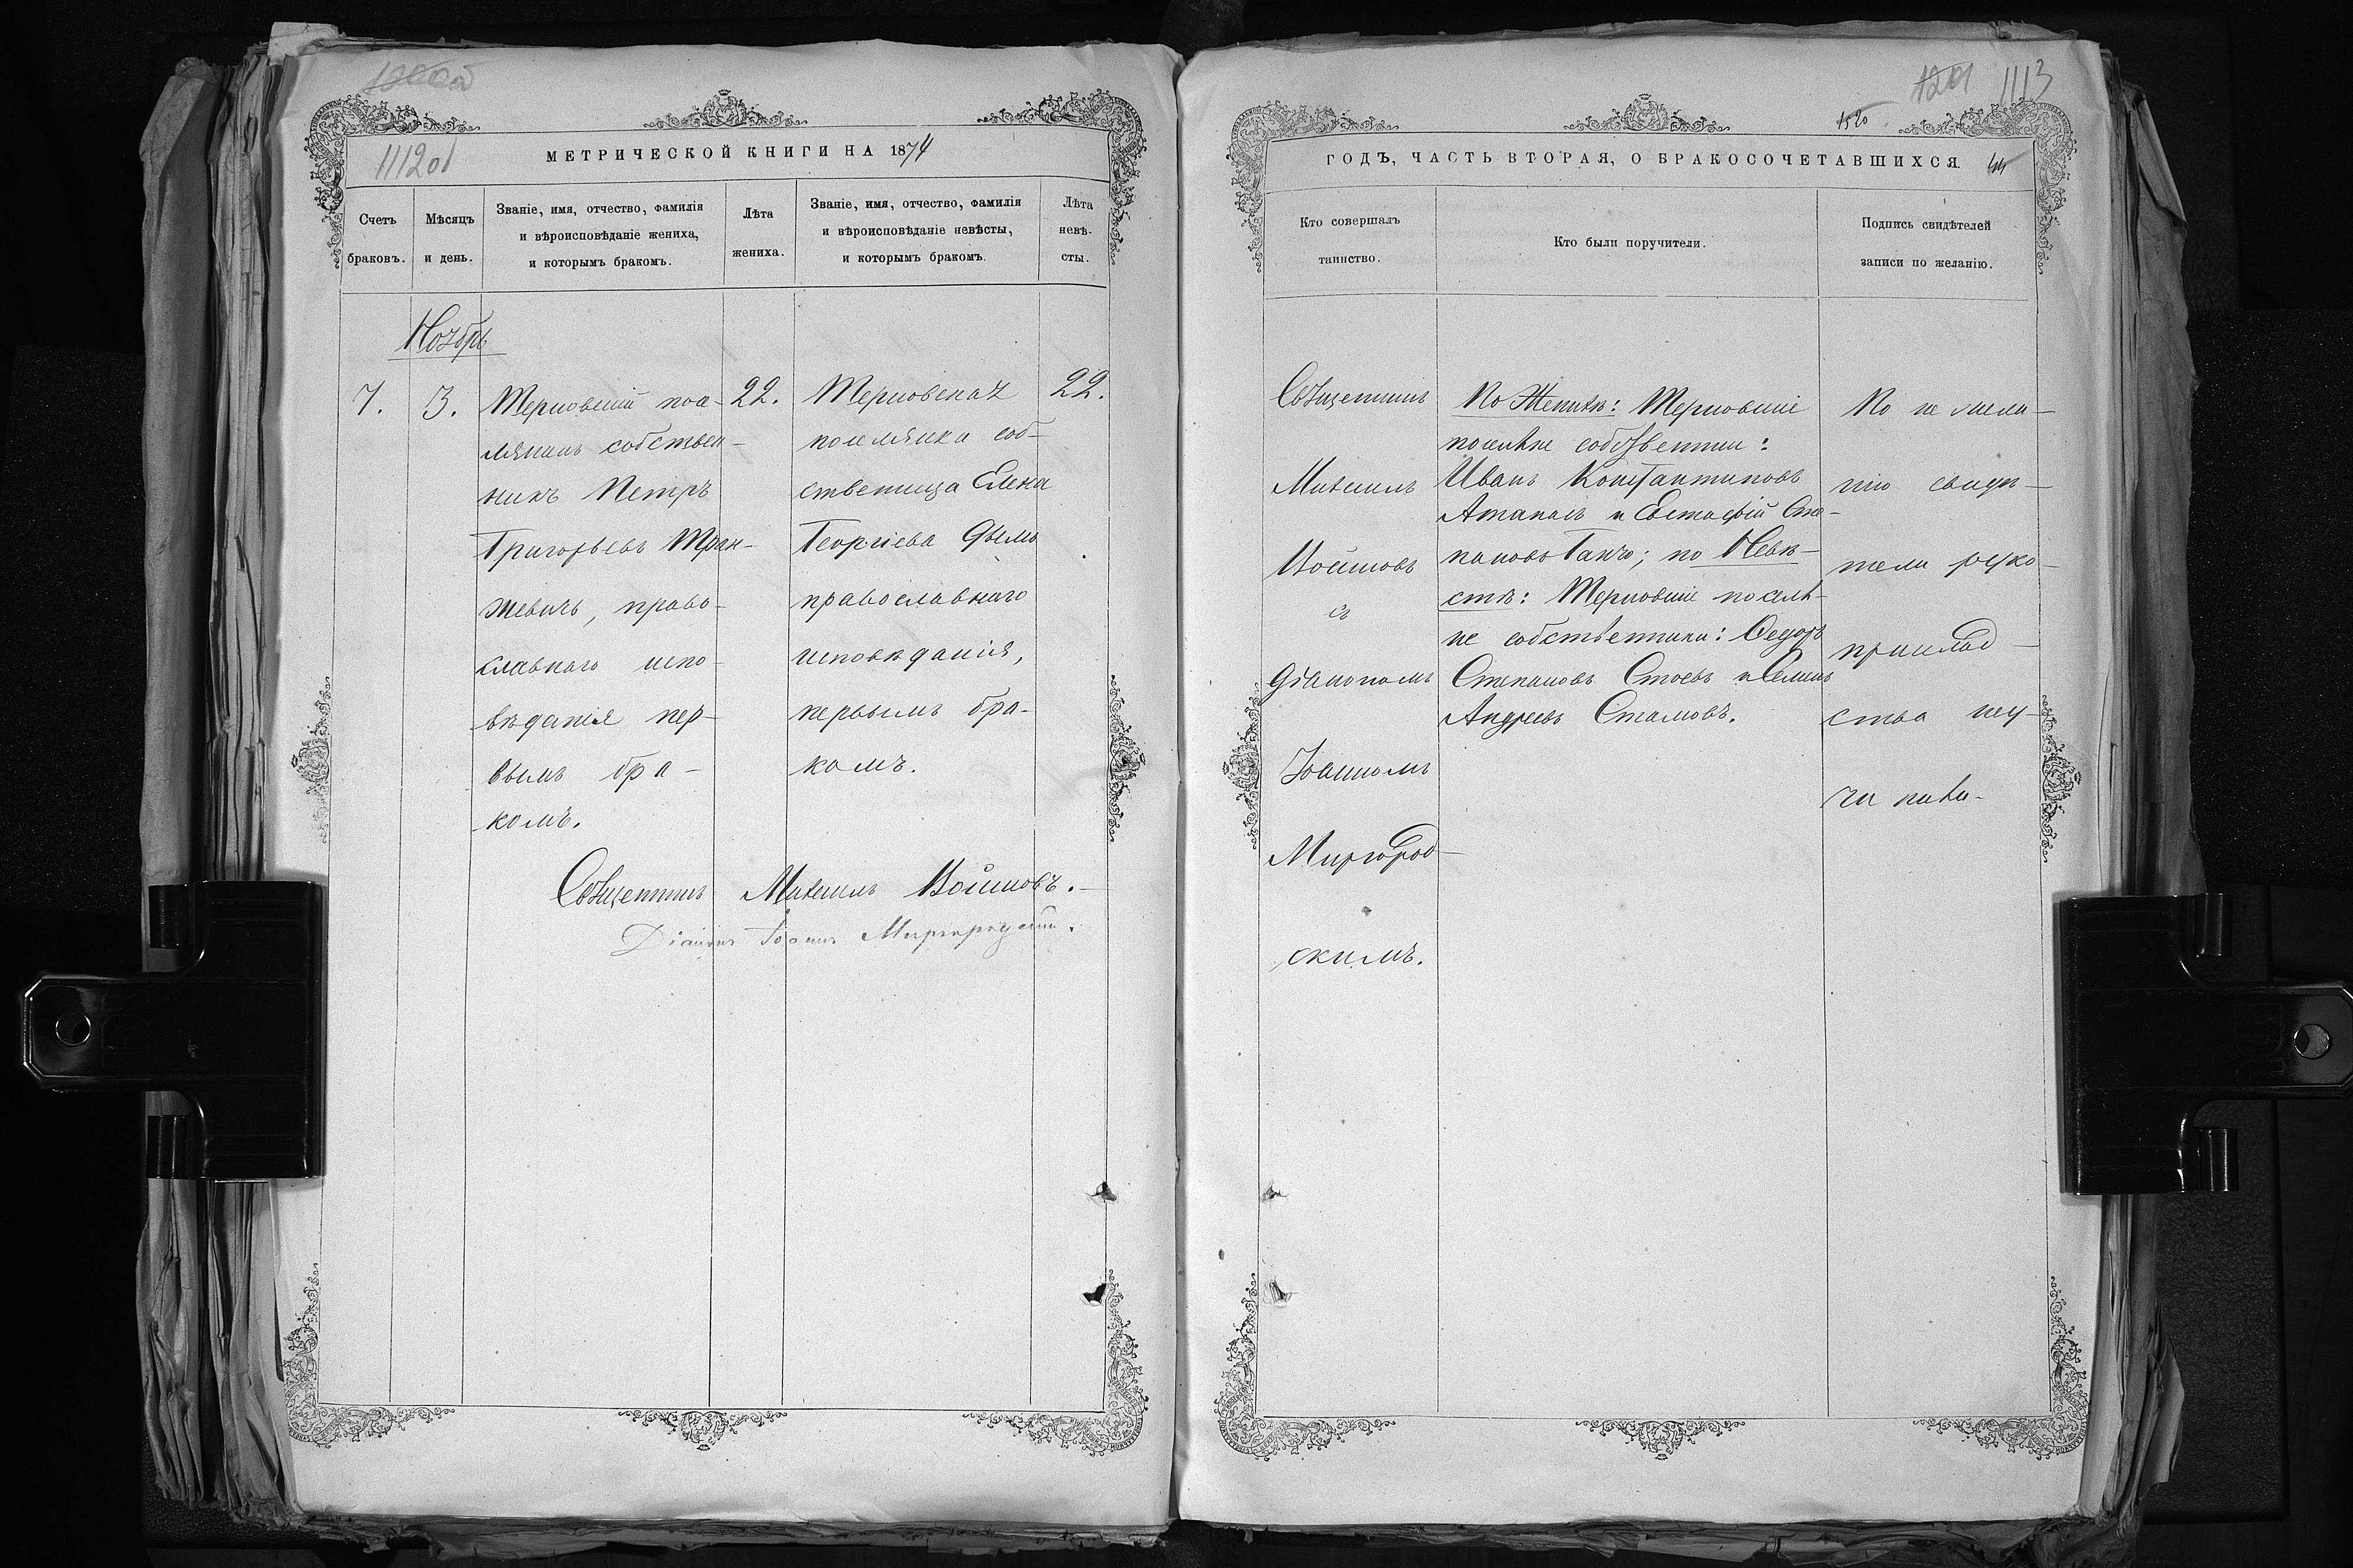 1112об
МЕТРИЧЕСКОЙ КНИГИ НА 1874
Счетъ
браковъ.
Мѣсяцъ
и день.
Званіе, имя, отчество, фамилія
и вѣроисповѣданіе жениха,
и которымъ бракомъ.
Лѣта
жениха.
Званіе, имя, отчество, фамилія
и вѣроисповѣданіе невѣсты,
и которымъ бракомъ.
Лѣта
невѣ-
сты.
Ноябрь
7.
3.
Терновскій посе-
лянинъ собствен-
никъ Петръ
Григорьевъ Тран-
жевичъ, право-
славнаго испо-
вѣданія пер-
вымъ бра-
комъ.
22.
Терновская
поселянка соб-
ственница Елена
Георгіева
православнаго
исповѣданія,
первымъ бра-
комъ.
22.
Священникъ Михаилъ Войновъ.
Діаконъ Іоаннъ Миргородскій.
1201 1113
1520
ГОДЪ, ЧАСТЬ ВТОРАЯ, О БРАКОСОЧЕТАВШИХСЯ
Кто совершалъ
таинство.
Кто были поручители.
Подпись свидѣтелей
записи по желанію.
Священникъ
Михаилъ
Войновъ
съ
Діакономъ
Іоанномъ
Миргород-
скимъ.
По Женихѣ: Терновскіе
поселяне собственники:
Иванъ Константиновъ
Атанасъ и Евстафій Сте-
пановъ Ганчо; по Невѣ-
стѣ: Терновскіе поселя-
не собственники: Ѳедоръ
Степановъ Стоевъ и Семенъ
Андреевъ Стамовъ.
По не жела-
нію свидѣ-
тели руко-
приклад-
ства неу-
чи нива-